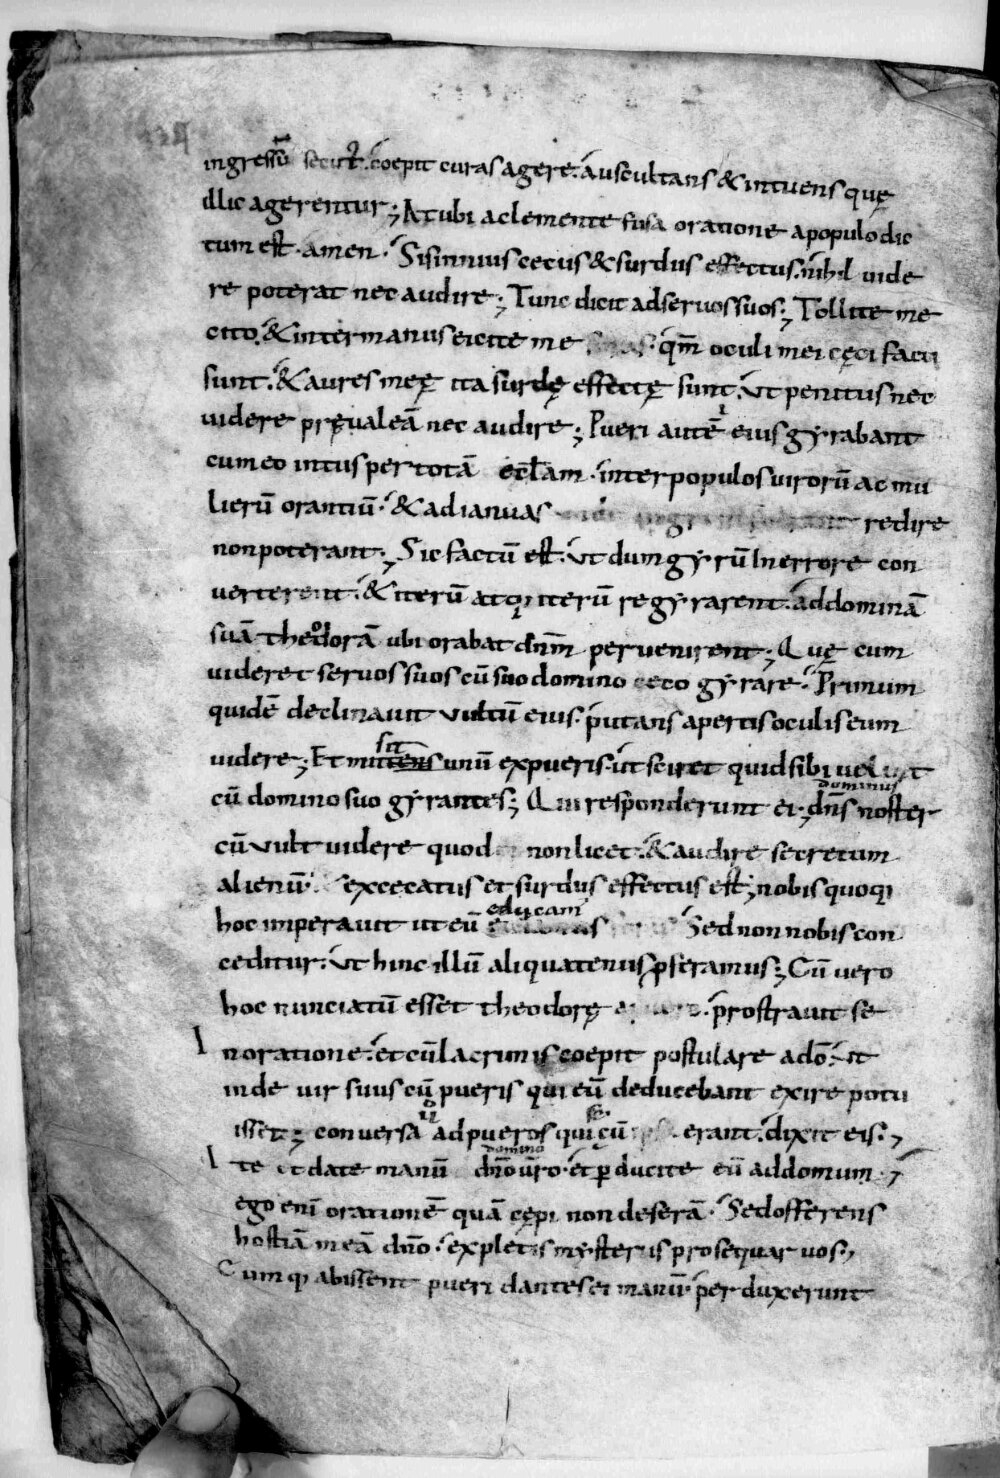 ingressū secut᷒. coepit curas agere. auscultans & intuens quę
illic agerentur; At ubi a clemente fusa oratione a populo dic
tum est. amen. Sisinnius cecus & surdus effectus. nihil uide
re poterat nec audire; Tunc dicit ad seruos suos; Tollite me
cito. & inter manus eicite me qm̄ oculi mei cęci facti
sunt. & aures meę ita surdę effectę sunt. ut penitus nec
uidere pręualeā nec audire; Pueri autē eius gyrabant
cum eo intus per totā eccl̄am. inter populos uirorū ac mu
lierū orantiū. & ad ianuas redire
non poterant; Sic factū est. ut dum gyrū In errore con
uerterent. & iterū atq; iterū regyrarent. ad dominā
suā theodorā ubi orabat dn̄m peruenirent; Quę cum
uideret seruos suos cū suo domino ceco gyrare. Primum
quidē declinauit uultū eius. putans apertis oculis eum
uidere; Et mittens unū ex pueris. ut sciret quid sibi uelint
sit
cū domino suo gyrantes; Qui responderunt ei; dn̄s noster
dominus
cū uult uidere quod non licet. & audire secretum
alienū. excecatus et surdus effectus est; nobis quoq;
hoc imperauit ut eū Sed non nobis con
educam
ceditur. ut hinc illū aliquatenus ꝓferamus; Cū uero
hoc nunciatū esset theodorę prostrauit se
In oratione. et cū lacrimis coepit postulare a dō. ut
inde uir suus cū pueris qui eū deducebant exire potu
isset; conuersa ad pueros qui cū erant. dixit eis;
Ite et date manū dn̄o ur̄o. et ꝑducite eū ad domum;
domino
ego eni orationē quā cępi non deserā. Sed offerens
hostiā meā dn̄o. expletis mysteriis prosequar uos;
Cumq; abissent pueri dantes ei manū. perduxerunt